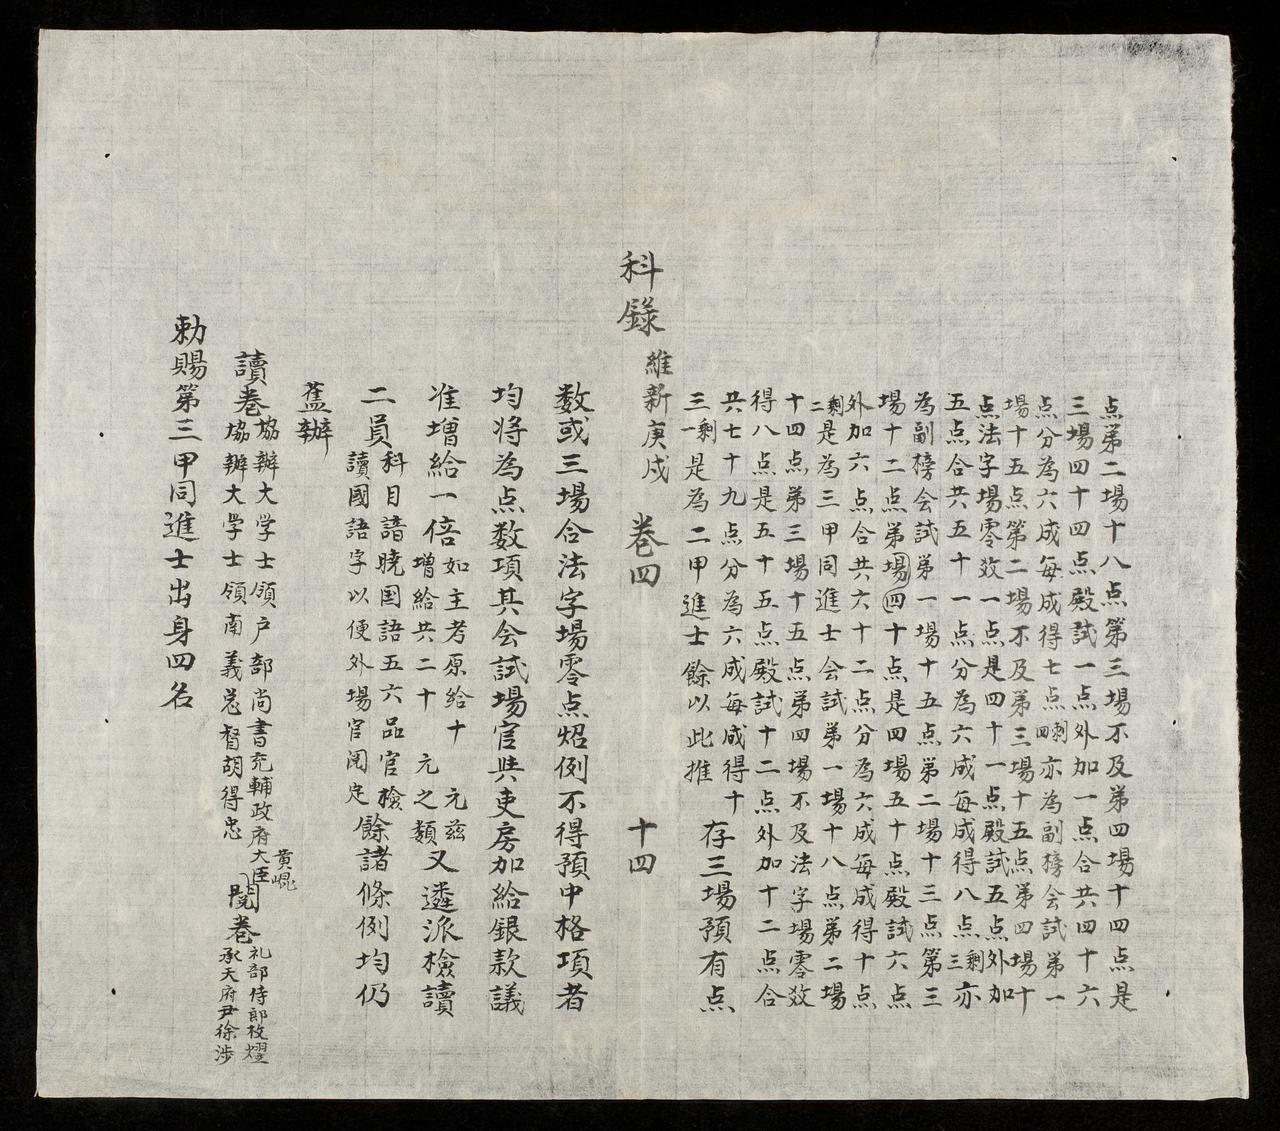 点第二場十八点第三場不及第四場十四点是
三場四十四点殿試一点外加一点合共四十六
点分為六成每成得七点剩四亦為副榜会試第一
場十五点第二場不及第三場十五点第四場十
点法字場零效一点是四十一点殿試五点外加
五点合共五十一点分為六成每成得八点剩三亦
為副榜会試第一場十五点第二場十三点第三
場十二点第四場十点是四場五十点殿試六点
外加六点合共六十二点分為六成每成得十点
剩二是為三甲同進士会試第一場十八点第二場
十四点第三場十五点第四場不及法字場零效
得八点是五十五点殿試十二点外加十二点合
共七十九点分為六成每成得十
三剩一是為二甲進士餘以此推
存三場預有点
科錄 維新庚戌 卷四 十四
数或三場合法字場零点炤例不得預中格項者
均将為点数項其会試場官共吏房加給銀款議
准增給一倍如主考原給十元茲
增給共二十元之類又遴派檢讀
二員科目諳曉国語五六品官檢
讀國語字以便外場官閱定餘諸條例均仍
舊辦
讀卷協辦大学士領户部尚書充輔政府大臣黄
協辦大学士領南義总督胡得忠
閱卷礼部侍郎枚燿
承天府尹徐渉
勅賜第三甲同進士出身四名